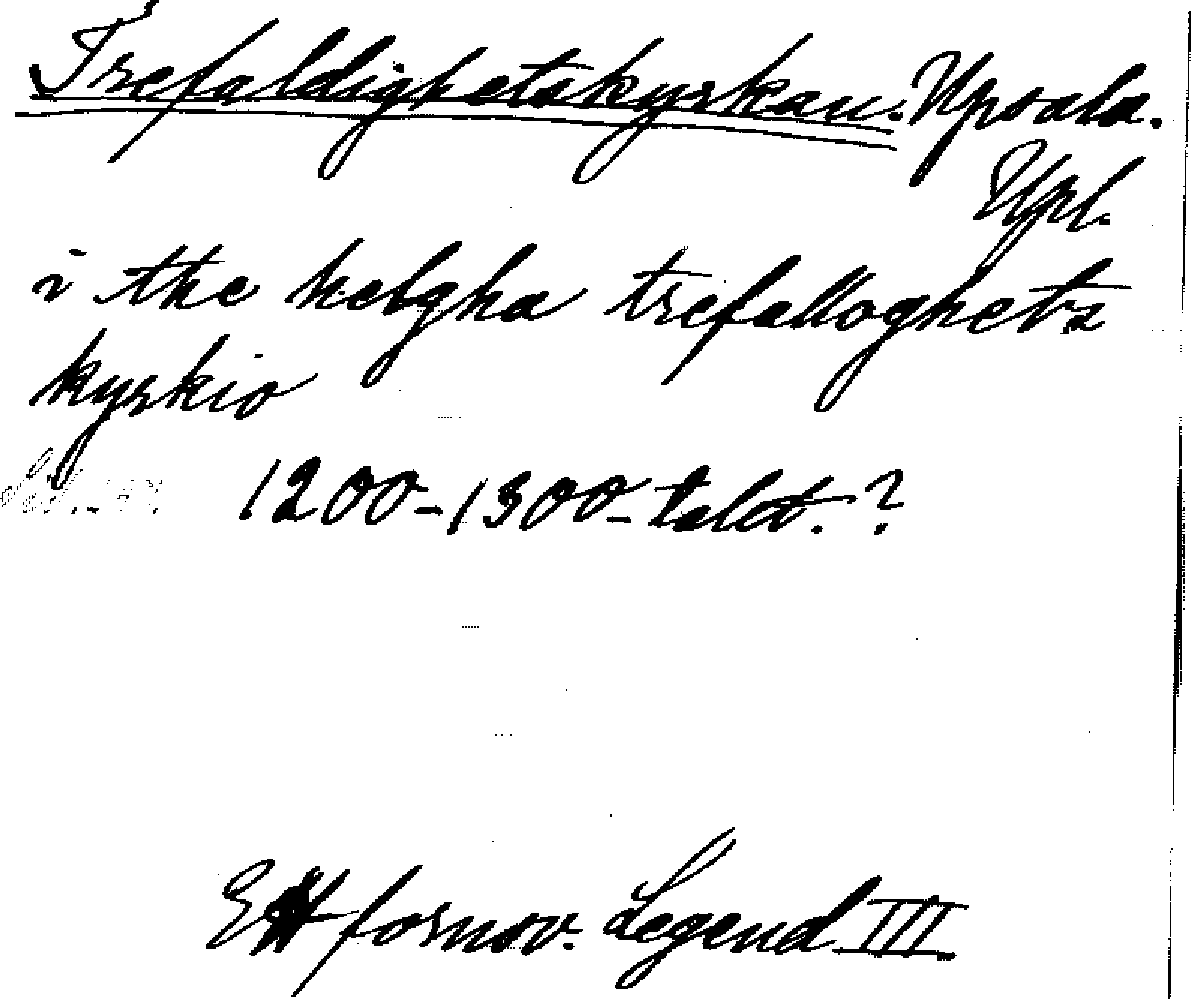 Trefaldighetskyrkan. Upsala.
Upl.
i the helgha trefalloghets
kyrkio
1200-1300-talet. ?
Ett fornsv. Legend III